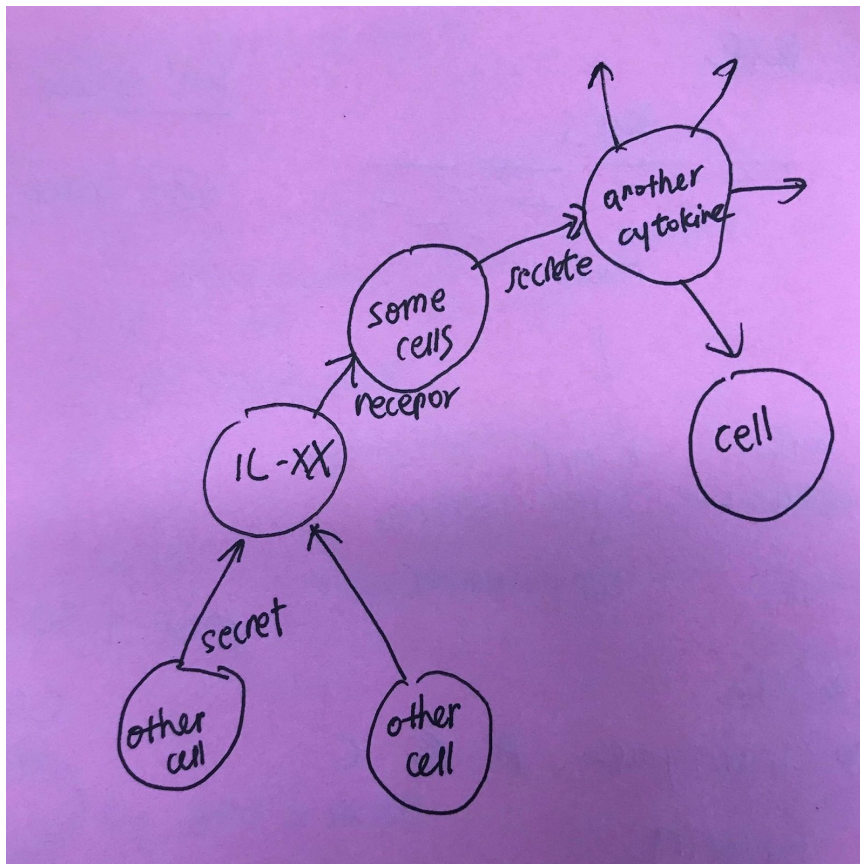 another
cytokine
secrete
some
cells
recepor
IL-XX
cell
secret
other
cell
other
cell